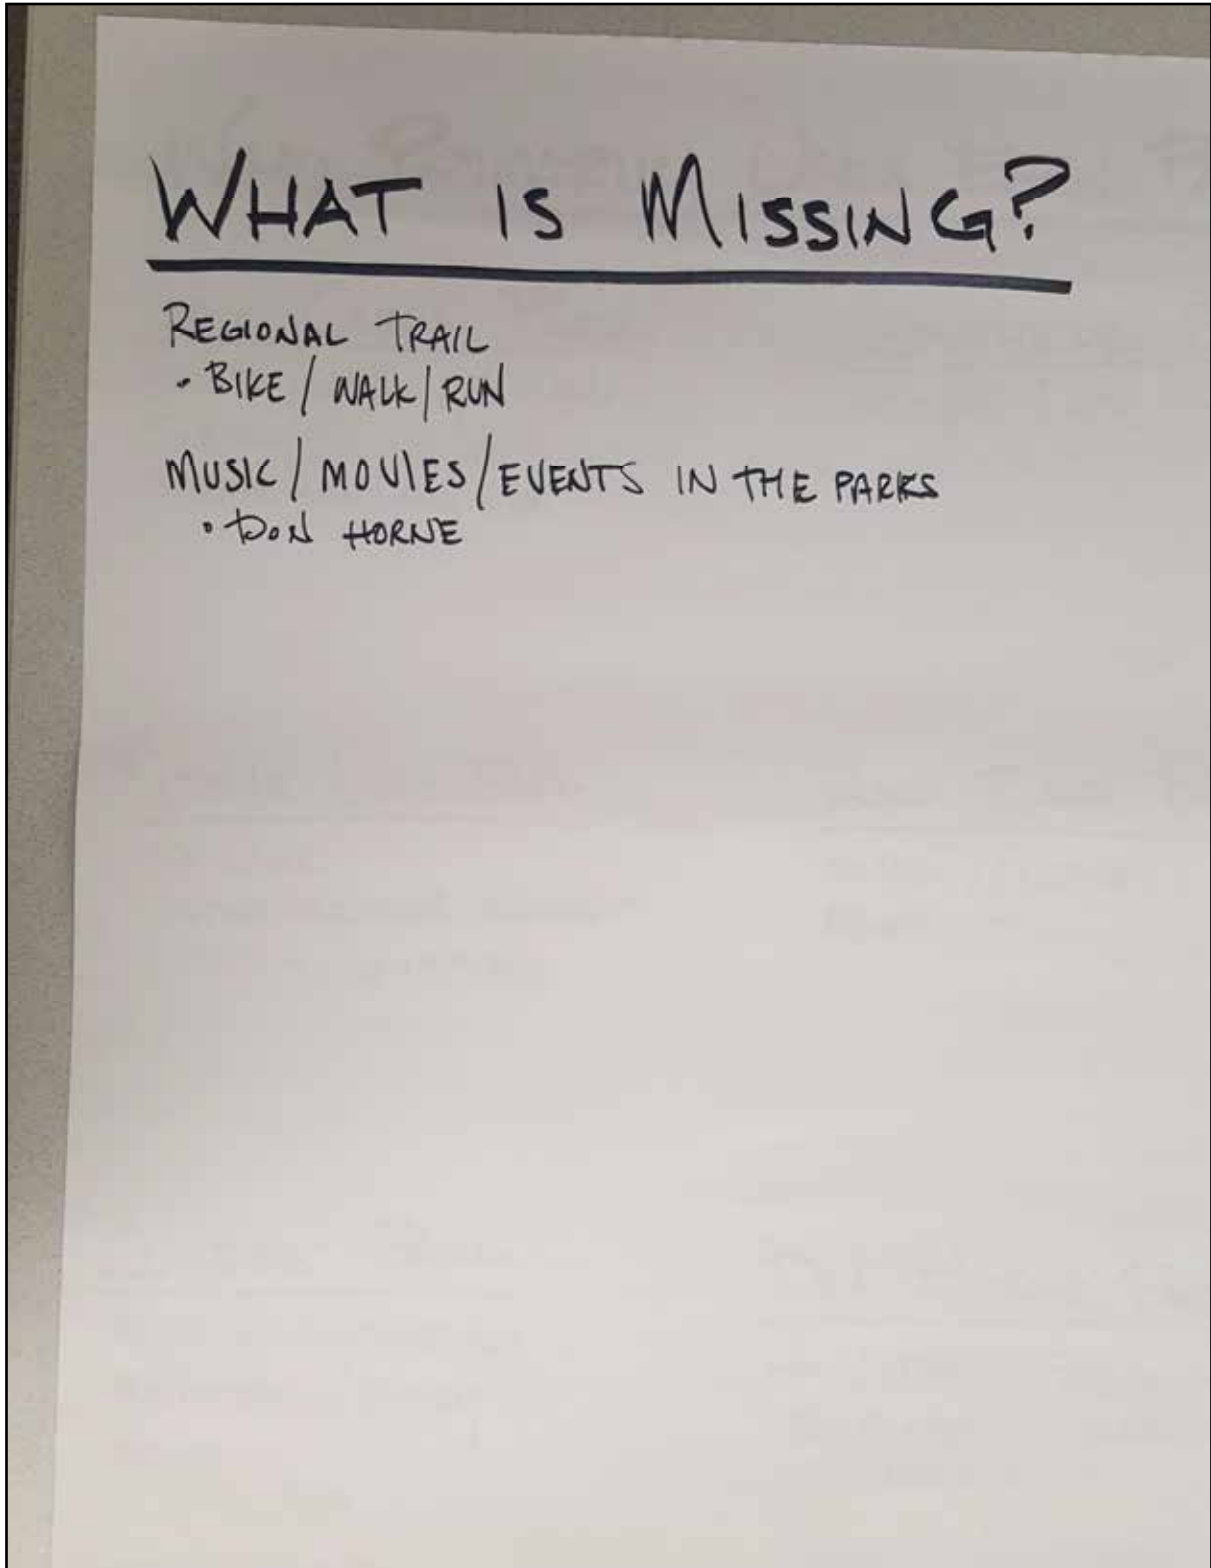 WHAT IS MISSING?
REGIONAL TRAIL
• BIKE / WALK / RUN
MUSIC / MOVIES / EVENTS IN THE PARKS
• DON HORNE